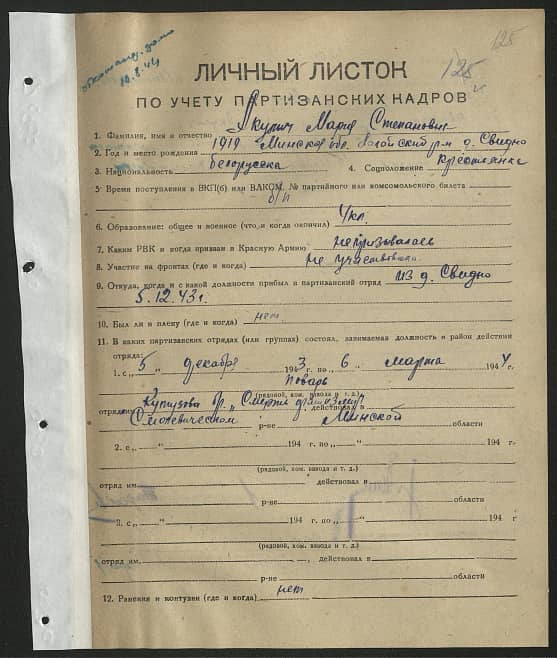 125
125
10.8.44
ЛИЧНЫЙ ЛИСТОК
ПО УЧЕТУ ПАРТИЗАНСКИХ КАДРОВ
1. Фамилия, имя и отчество Якупич Мария Степановна
2. Год и место рождения 1919 Минская обл. Логойский р-н д. Свидно
3. Национальность белоруска 4. Соцположение крестьянка
5 Время поступления в ВКП(б) или ВЛКСМ, № партийного или комсомольского билета
б/п
6. Образование: общее и военное (что и когда окончил) 4 кл.
7. Каким РВК и когда призван в Красную Армию не призывалась
8. Участие на фронтах (где и когда) не участвовала
9. Откуда, когда и с какой должности прибыл в партизанский отряд из д. Свидно
5.12.43 г.
10. Был ли в плену (где и когда) нет
11. В каких партизанских отрядах (или группах) состоял, занимаемая должность и район действий
отряда:
1. с „ 5 декабря 1943 г. по „ 6 марта 1944 г.
повар
(рядовой, ком. взвода и т. д.)
отряд им. Кутузова бр. „Смерть фашизму" действовал в
Смолевическом р-не Минской области
2. с „ “ 194 г. по „ “ 194 г
(рядовой, ком. взвода и т. д.)
отряд им. действовал в
р-не области
3. с „ “ 194 г. по „ “ 194 г
(рядовой, ком. взвода и т. д.)
отряд им. , действовал в
р-не области
12. Ранения и контузии (где и когда) нет